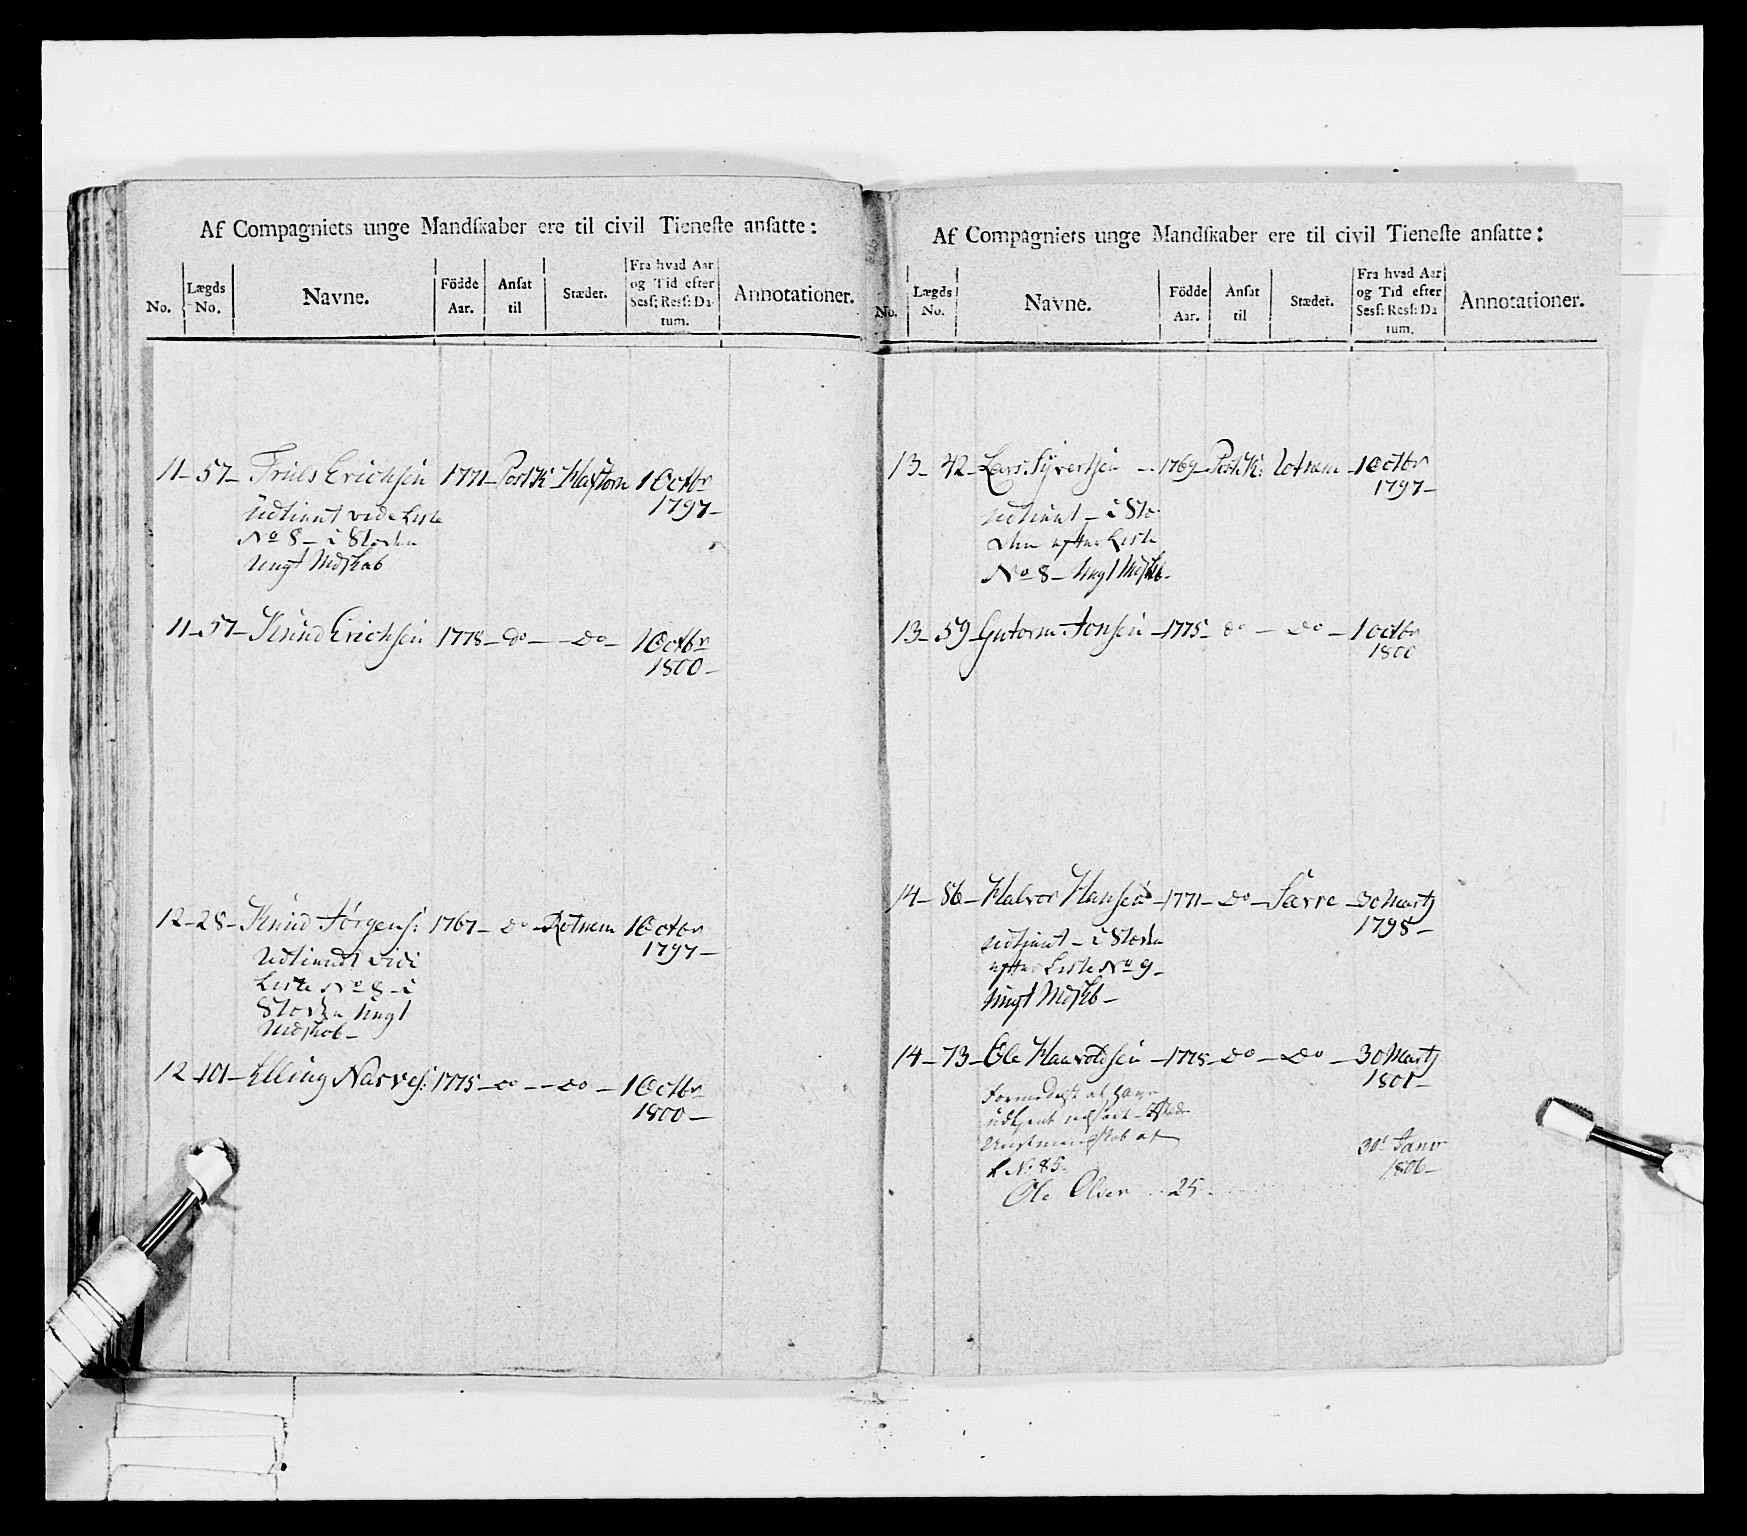 Af Compagniets unge Mandſkaber ere til civil Tieneſte anſatte:
No. Lægds No. Navne. Födde Aar. Anſat til Stæder. Fra hvad Aar og Tid efter Sesſ: Resſ: Datum. Annotationer.
11-57- Erichsen 1771- Postk: 1 Octbr
1797-
Udtient vide Liste
No 8- i Stæden
Ungt Mdskab
11-57- Knud Erichsen 1778- do - - Do - 1 Octbr
1800-
12-28- Knud Jörgens: 1767- do - Rotnem 1 Octbr
1797-
Udtient vide
Liste No 8- i
Stæden Ungt
Mdskab-
12-101- Elling Narves: 1775- do - - Do - 1 Octbr
1800-
Af Compagniets unge Mandſkaber ere til civil Tieneſte anſatte:
No. Lægds No. Navne. Födde Aar. Anſat til Stædet. Fra hvad Aar og Tid efter Sesſ: Resſ: Datum. Annotationer.
13-42- Lars Syvertsen - 1769- Postk: 1 Octbr
1797-
udtient - i Stæ-
den efter Liste
No 8- Ungt Mdskb-
13-59- Gutorm Jonsen - 1775- do - Do - 1 octbr
1800
14-86- Halvor Hansen - 1771- Do - Færre - 30 Marty
1798-
udtient - i Stæden
efter Liste No 9-
Ungt Mdskb-
14-73- Ole Haavelsen - 1778- Do - Do - 30 Marty
1801-
Formedelst at have
udtient
Ungtmandskab af
L No 85. 30t Janv
1806-
Ole Olsen 25